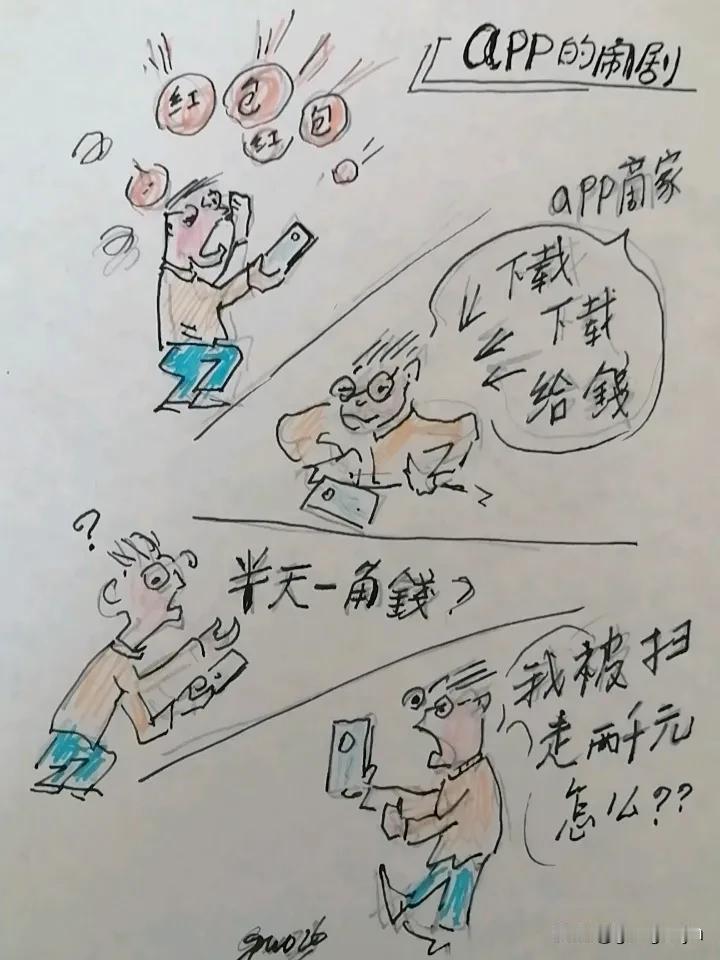 app的闹剧
红 包
红 包
app商家
下载
下载
给錢
?
半天一角錢?
我被扫
走两千元
怎么??